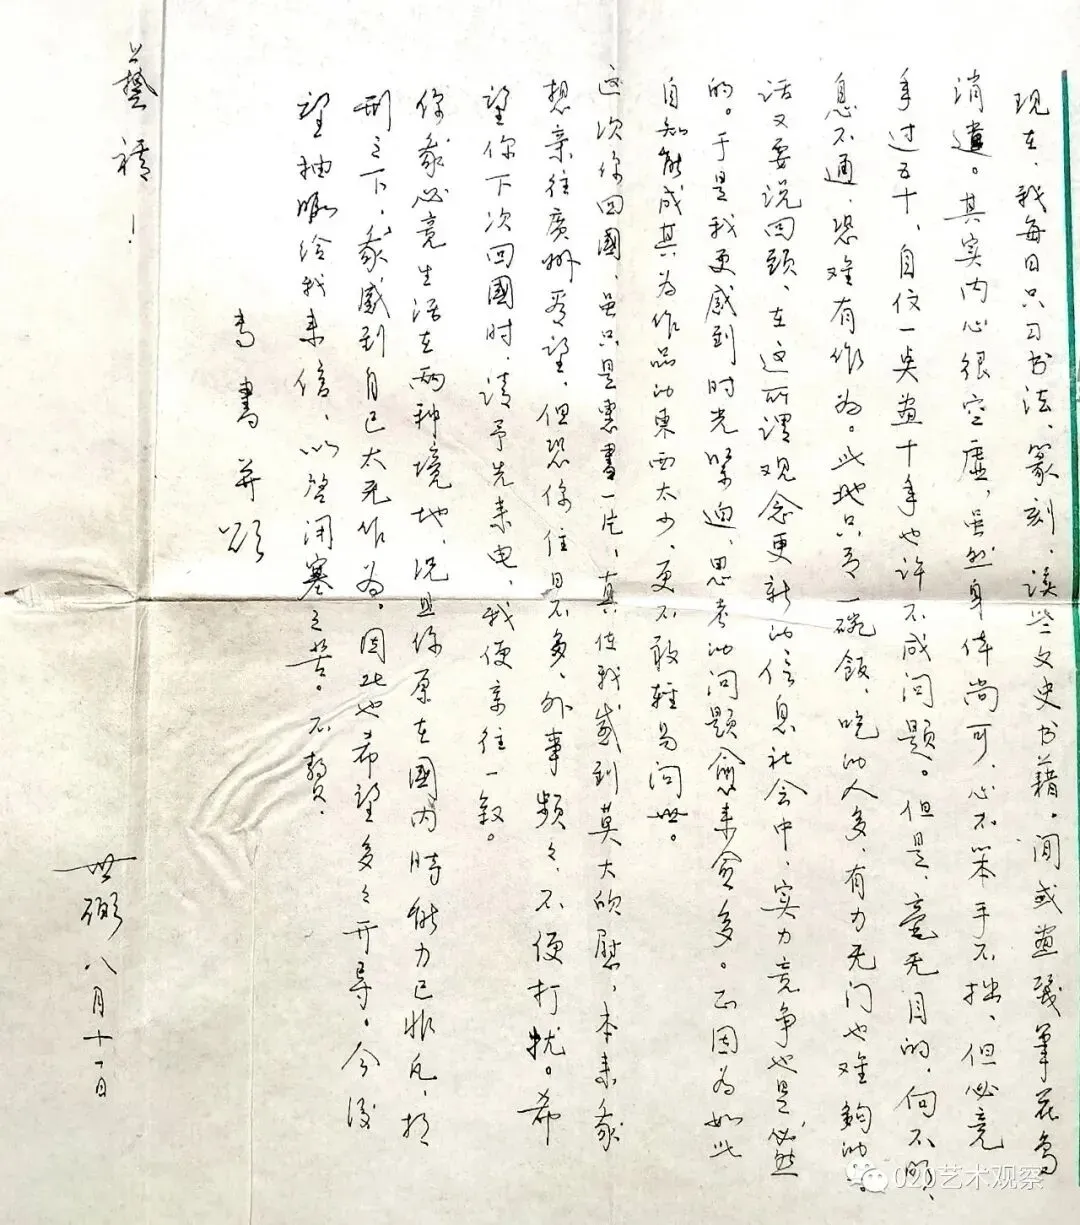 现在，我每日只习书法、篆刻，读些文史书籍。间或画几笔花鸟
消遣。其实内心很空虚，虽然身体尚可，心不笨手不拙，但必竟
年过五十，自位一矣画十年也许不成问题。但是，毫无目的，向不明、
息不通，恐难有作为。此地只有一碗饭，吃的人多，有力无门也难夠的。
话又要说回头，在这所谓观念更新的信息社会中，实力竞争也是必然
的。于是我更感到时光紧迫，思考的问题愈来愈多。正因为如此
自知能成其为作品的东西太少，更不敢轻易问世。
这次你回國，虽只是惠書一片，真使我感到莫大欣慰，本来我
想亲往廣州看望，但恐你住日不多，外事频々，不便打扰。希
望你下次回國时，请予先来电，我便亲往一敘。
你我必竟生活在两种境地，况且你原在國内時能力已非凡，相
形之下，我感到自己太无作为。因此也希望多々开导。今後
望抽暇给我来信，以啓闭塞之苦。不贅。
专書并颂
藝禧！
世弼 八月十一日
020艺术观察